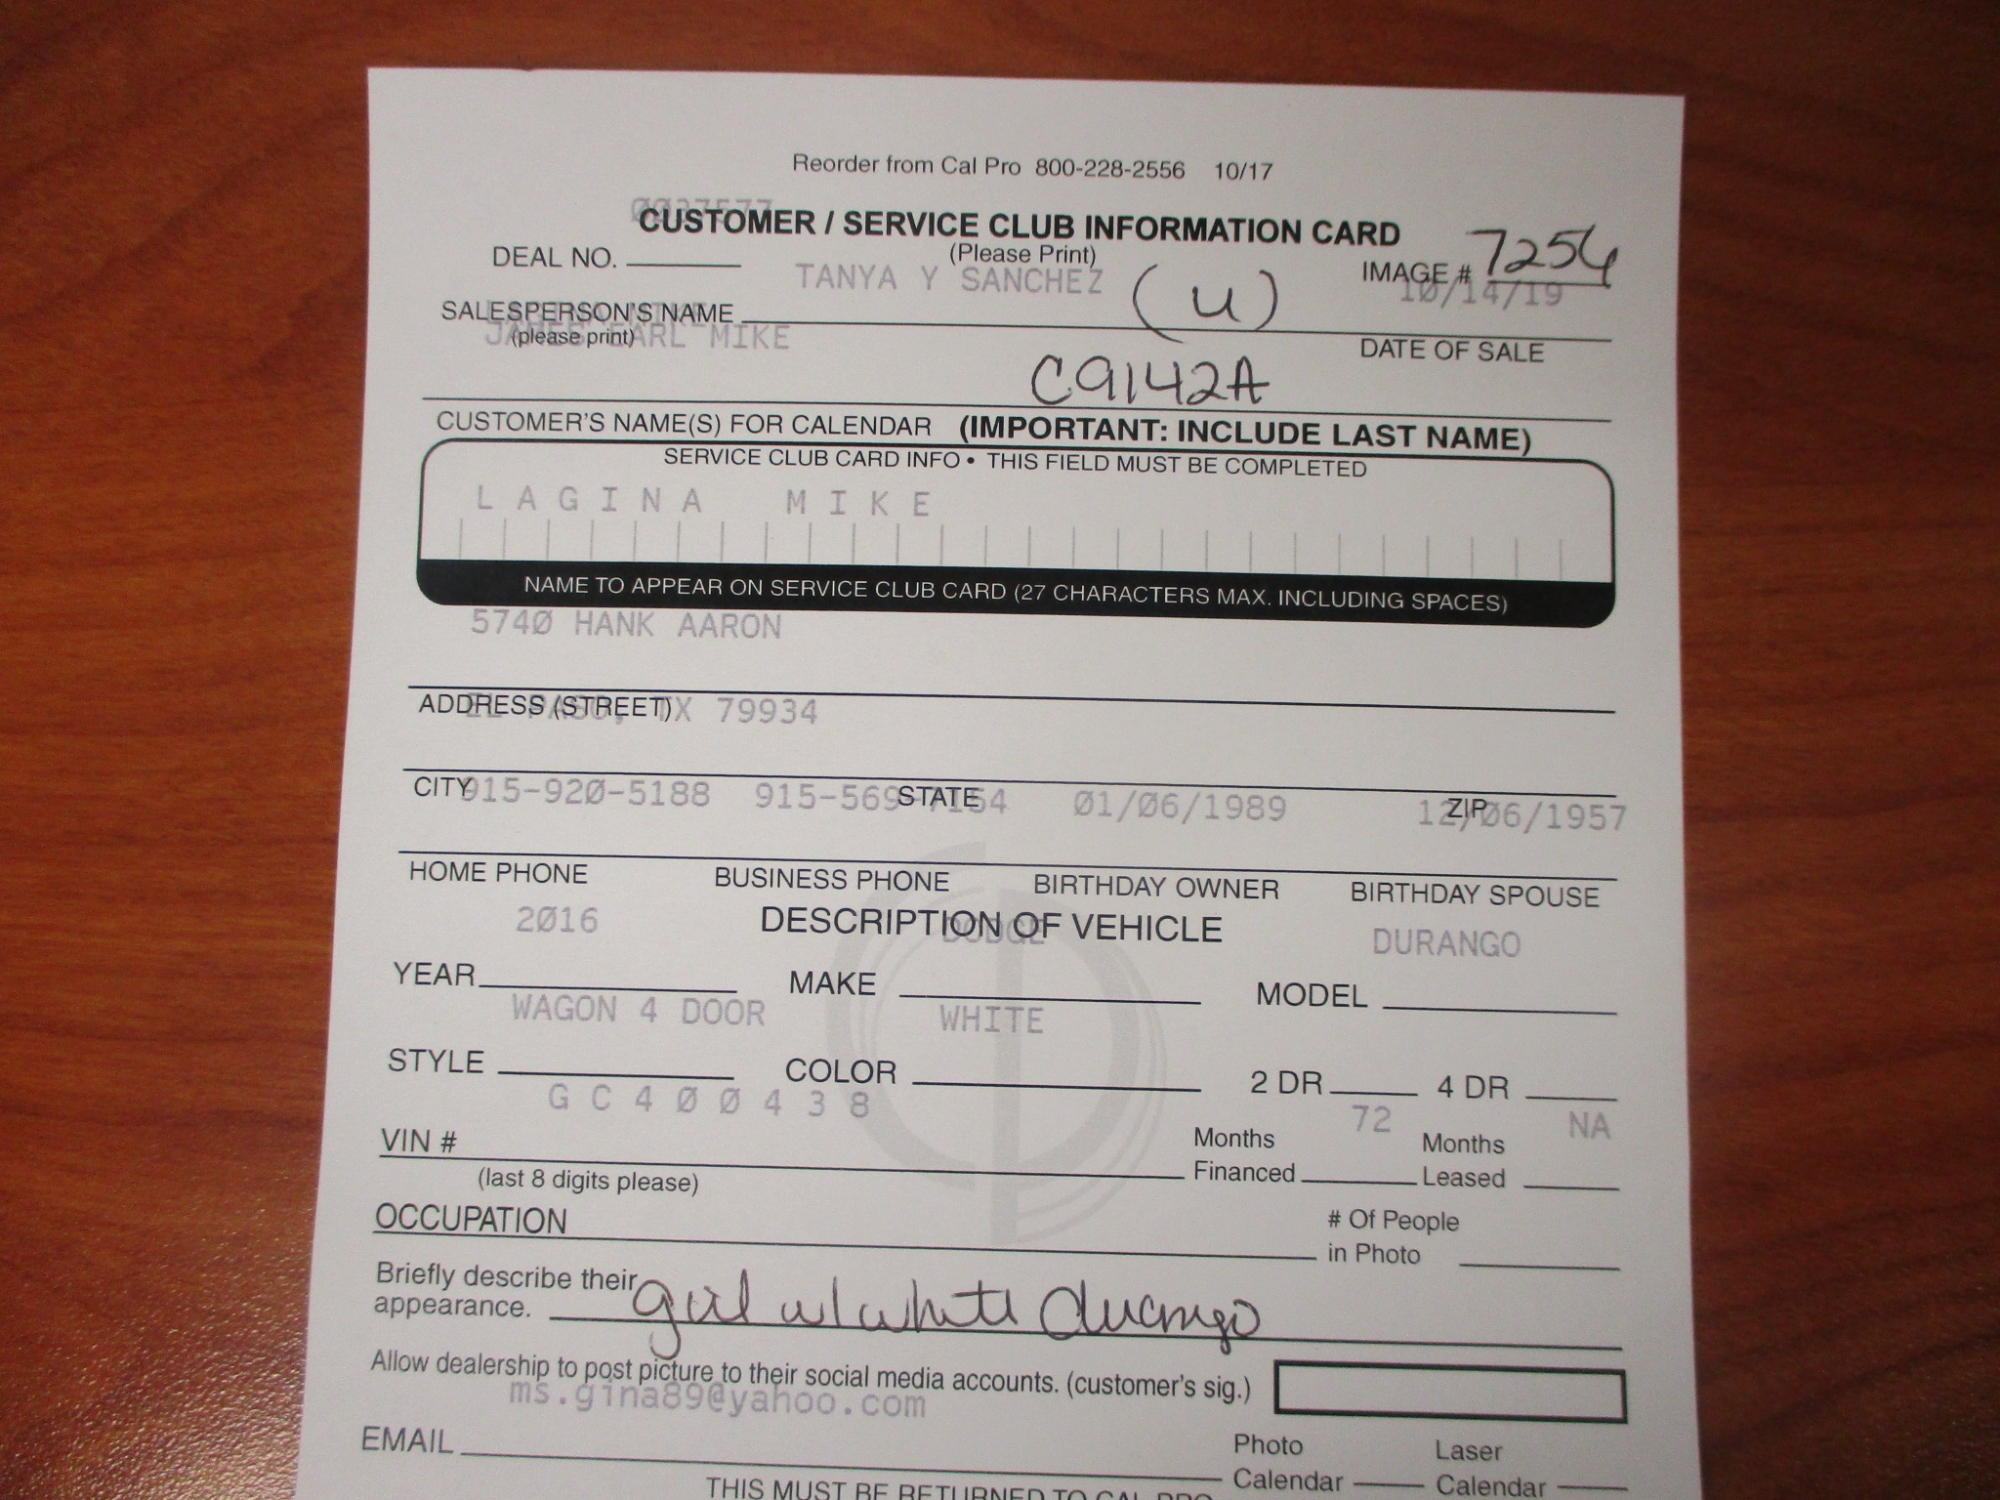 Reorder from Cal Pro 800-228-2556 10/17
0037577
CUSTOMER / SERVICE CLUB INFORMATION CARD
(Please Print)
DEAL NO.
TANYA Y SANCHEZ
(U)
IMAGE # 7256
10/14/19
SALESPERSON'S NAME
(please print)
JAMES EARL MIKE
DATE OF SALE
C9142A
CUSTOMER'S NAME(S) FOR CALENDAR (IMPORTANT: INCLUDE LAST NAME)
SERVICE CLUB CARD INFO • THIS FIELD MUST BE COMPLETED
LAGINA MIKE
NAME TO APPEAR ON SERVICE CLUB CARD (27 CHARACTERS MAX. INCLUDING SPACES)
5740 HANK AARON
ADDRESS (STREET)
EL PASO, TX 79934
CITY STATE ZIP
915-920-5188 915-569-7154 01/06/1989 12/06/1957
HOME PHONE BUSINESS PHONE BIRTHDAY OWNER BIRTHDAY SPOUSE
DESCRIPTION OF VEHICLE
2016 DODGE DURANGO
YEAR MAKE MODEL
WAGON 4 DOOR WHITE
STYLE COLOR 2 DR 4 DR
GC400438 72 NA
VIN # Months Financed Months Leased
(last 8 digits please)
OCCUPATION # Of People in Photo
Briefly describe their
appearance. girl w/ white durango
Allow dealership to post picture to their social media accounts. (customer's sig.)
ms.gina89@yahoo.com
EMAIL Photo Calendar Laser Calendar
THIS MUST BE RETURNED TO CAL PRO